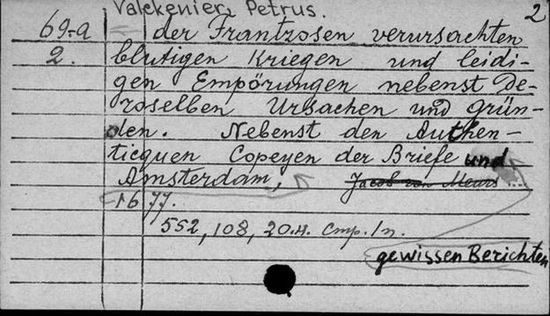 Valckenier, Petrus. 2
69-a der Frantzosen verursachten
2. blutigen Kriegen und leidi-
gen Empörungen nebenst De-
roselben Ursachen und Grün-
den. Nebenst den Authen-
ticquen Copeyen der Briefe und
Amsterdam, Jacob von Meurs ...
1677.
552, 108, 20 н. стр./п.
gewissen Berichten